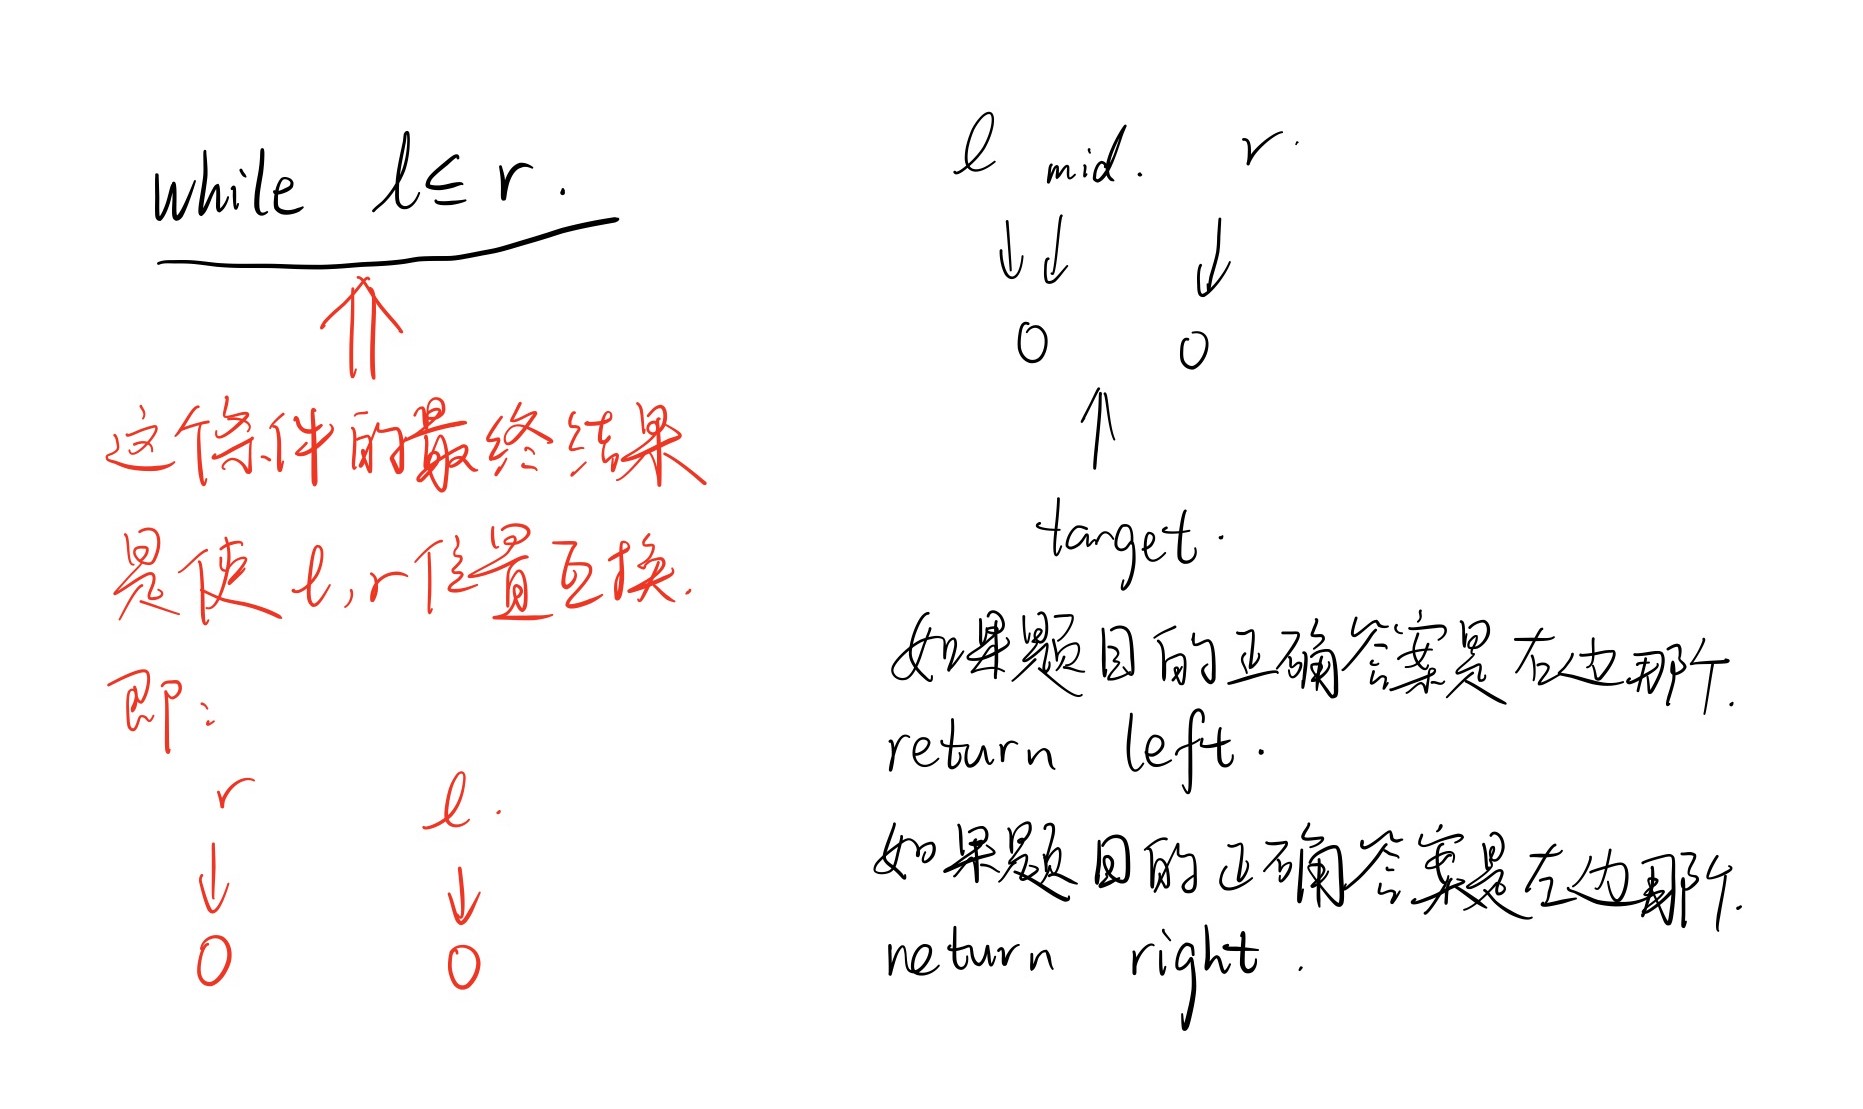 while l≤r.
这个条件的最终结果
是使 l,r 位置互换.
即:
r l.
0 0
l mid. r.
0 0
target.
如果题目的正确答案是右边那个.
return left.
如果题目的正确答案是左边那个.
return right.